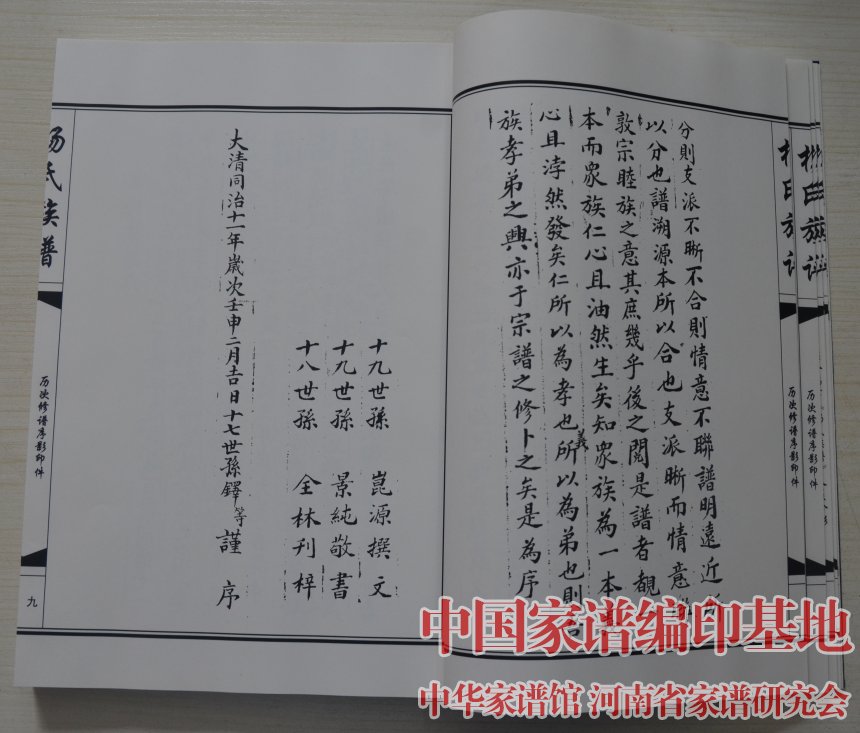 分則支派不晰不合則情意不聯譜明遠近所
以分也譜溯源本所以合也支派晰而情意
敦宗睦族之意其庶幾乎後之閱是譜者覩
本而眾族仁心且油然生矣知眾族為一本
心且浡然發矣仁所以為孝也義所以為弟也則
族孝弟之興亦于宗譜之修卜之矣是為序
十九世孫 崑源撰文
十九世孫 景純敬書
十八世孫 全林刊梓
大清同治十一年歲次壬申二月吉日十七世孫鐸等謹序
杨氏族譜
历次修譜序影印件
九
历次修譜序影印件
历次修譜序影印件
中国家谱编印基地
中华家谱馆 河南省家谱研究会